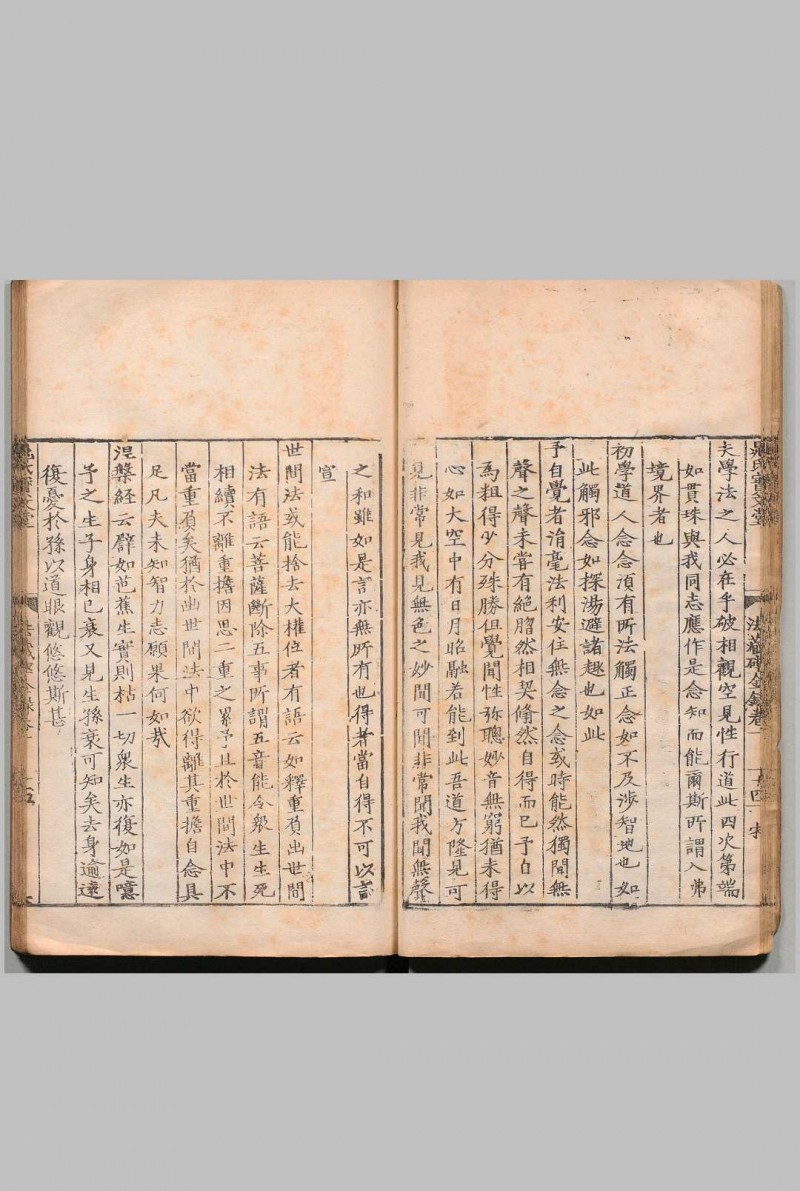 晁氏寳文堂
法藏碎金録卷一
夫學法之人必在乎破相觀空見性行道此四次第端
如貫珠與我同志應作是念知而能爾斯所謂入弗
境界者也
初學道人念念湏有所法觸正念如不及渉智地也如
此觸邪念如探湯避諸趣也如此
予自覺者消毫法利安住無念之念或時能然獨聞無
聲之聲未嘗有絶䐇然相契翛然自得而已予自以
爲粗得少分殊勝但覺聞性弥聰妙音無窮猶未得
心如大空中有日月昭融若能到此吾道方隆見可
見非常見我見無色之妙聞可聞非常聞我聞無聲
之和雖如是言亦無所有也得者當自得不可以言
宣
世間法或能捨去大權位者有語云如釋重負出世間
法有語云菩薩斷除五事所謂五音能令衆生生死
相續不離重擔因思二重之累予且於世間法中不
當重負矣猶於出世間法中欲得離其重擔自念具
足凡夫未知智力志願果何如哉
涅槃経云譬如芭蕉生實則枯一切衆生亦復如是噫
予之生子身相已衰又見生孫衰可知矣去身逾遠
復憂於孫以道眼觀悠悠斯甚